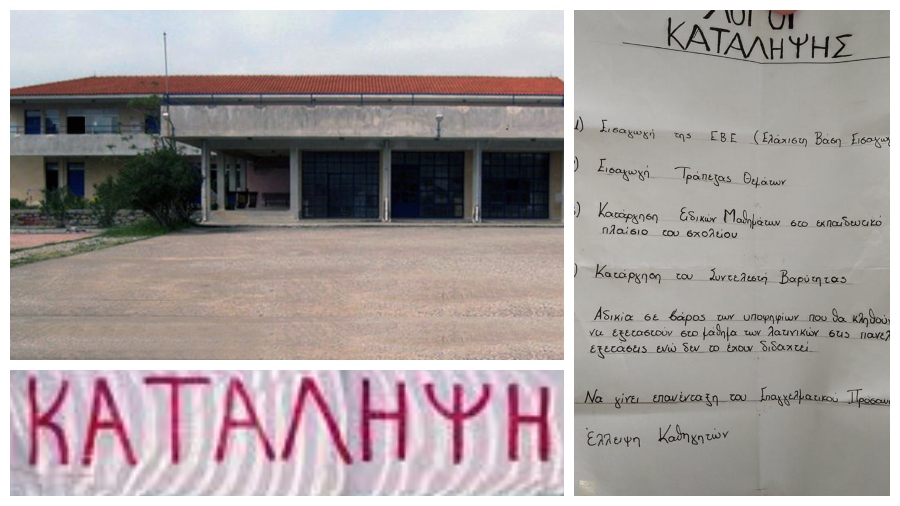 ΚΑΤΑΛΗΨΗ
ΛΟΓΟΙ
ΚΑΤΑΛΗΨΗΣ
Εισαγωγή της ΕΒΕ (Ελάχιστη Βάση Εισαγωγ
Εισαγωγή Τράπεζας Θεμάτων
Κατάργηση Ειδικών Μαθημάτων στο εκπαιδευτικό
πλαίσιο του σχολείου
Κατάργηση του Συντελεστή Βαρύτητας
Αδικία σε βάρος των υποψηφίων που θα κληθούν
να εξεταστούν στο μάθημα των λατινικών στις πανελ
εξετάσεις ενώ δεν το έχουν διδαχτεί
Να γίνει επανένταξη του Επαγγελματικού Προσαν
Έλλειψη Καθηγητών